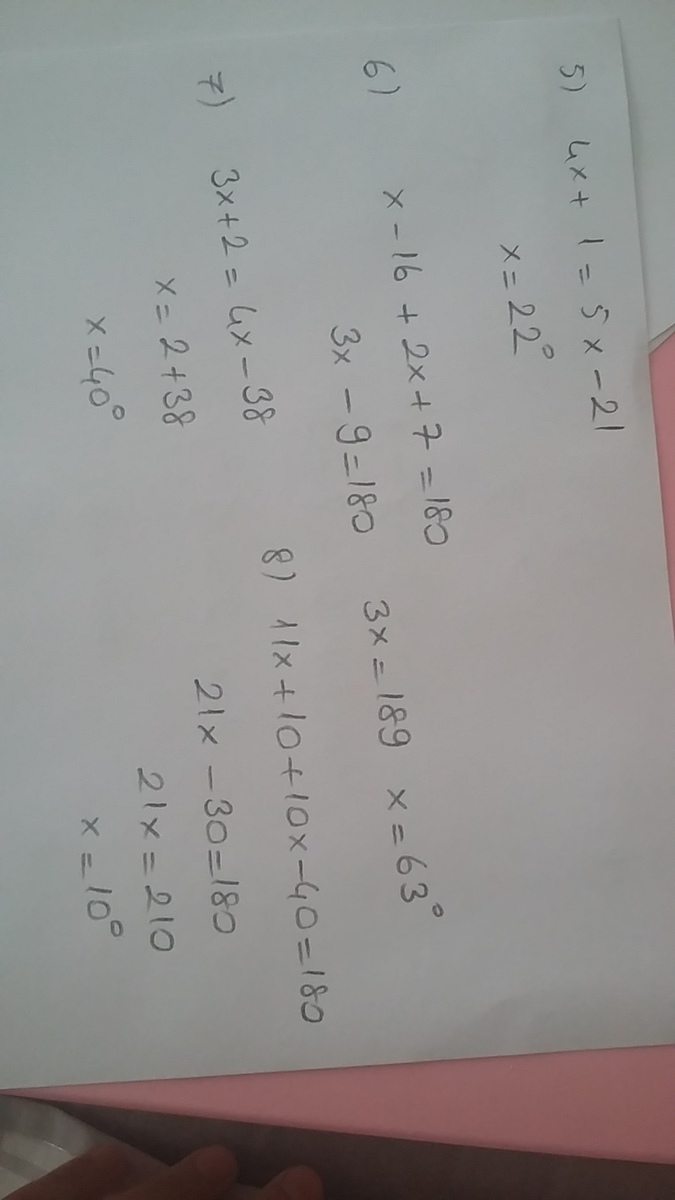 5) 4x + 1 = 5x - 21
x = 22°
6) x - 16 + 2x + 7 = 180
3x - 9 = 180 3x = 189 x = 63°
7) 3x + 2 = 4x - 38
x = 2 + 38
x = 40°
8) 11x + 10 + 10x - 40 = 180
21x - 30 = 180
21x = 210
x = 10°